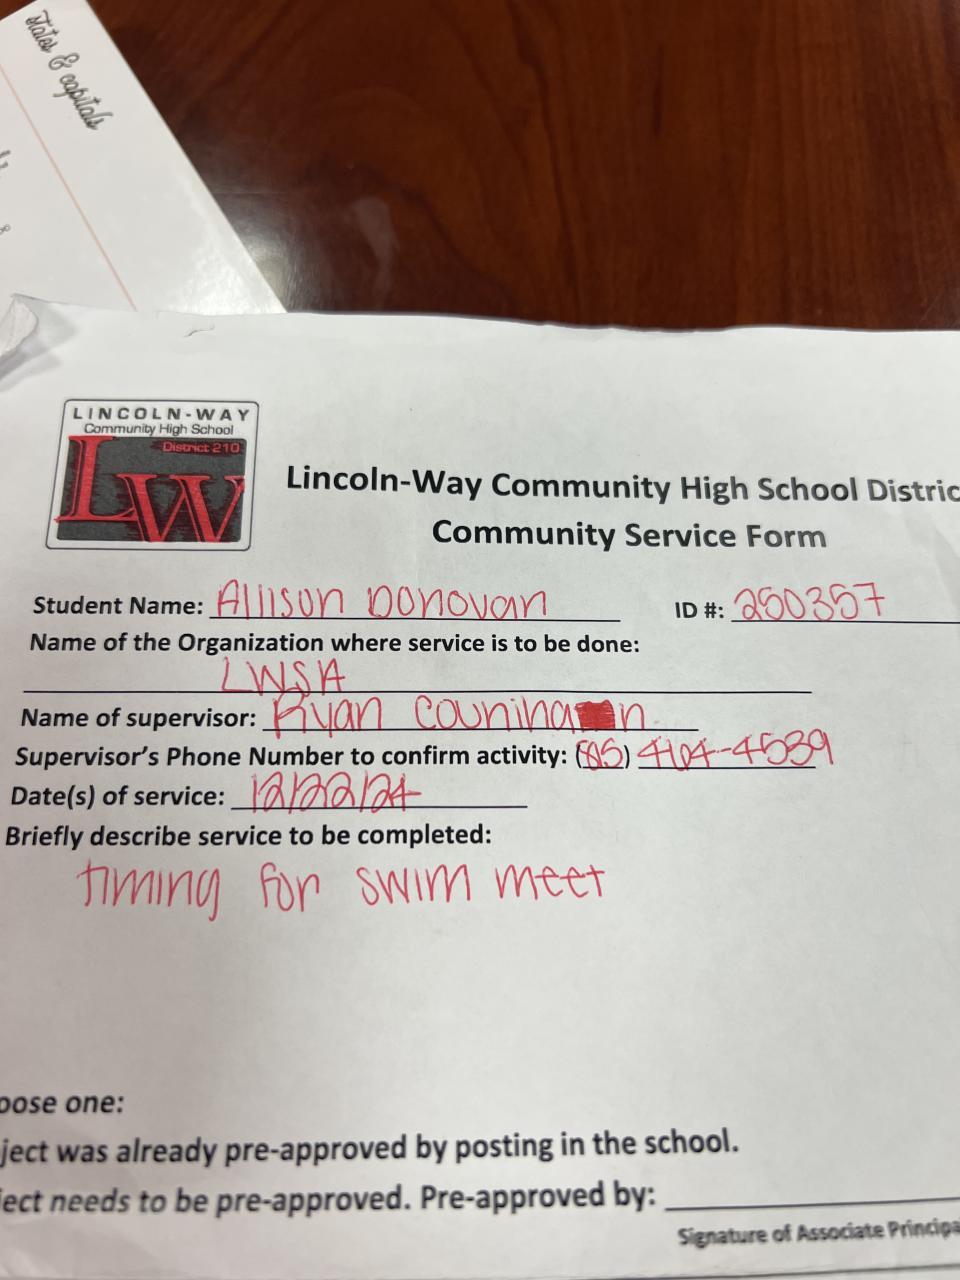 States & capitals
LINCOLN-WAY
Community High School
District 210
LW
Lincoln-Way Community High School Distric
Community Service Form
Student Name: Allison Donovan ID #: 250357
Name of the Organization where service is to be done:
LWSA
Name of supervisor: Ryan Counihan
Supervisor's Phone Number to confirm activity: (815) 4104-4539
Date(s) of service: 12/22/24
Briefly describe service to be completed:
timing for swim meet
oose one:
ject was already pre-approved by posting in the school.
ject needs to be pre-approved. Pre-approved by:
Signature of Associate Principa